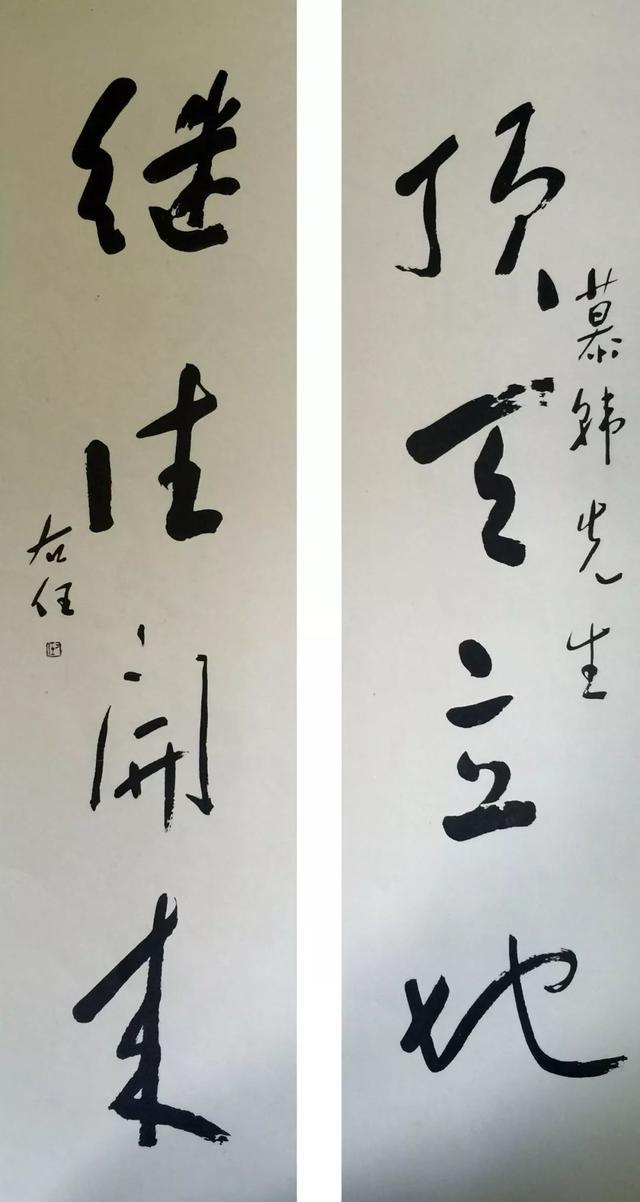 顶天立地
慕韩先生
继往开来
右任